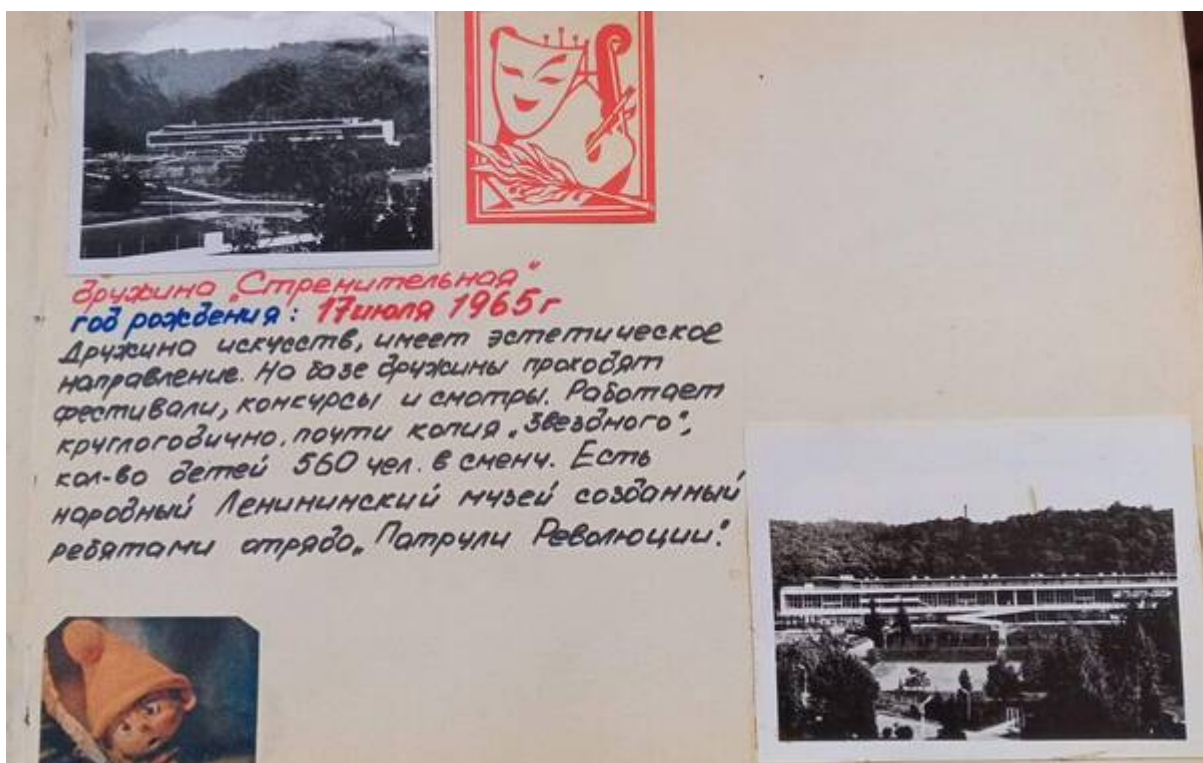 дружина „Стремительная"
год рождения: 17 июля 1965 г
Дружина искусств, имеет эстетическое
направление. На базе дружины проходят
фестивали, конкурсы и смотры. Работает
круглогодично. почти копия „Звездного",
кол-во детей 560 чел. в смену. Есть
народный Ленининский музей созданный
ребятами отряда „Патрули Революции".